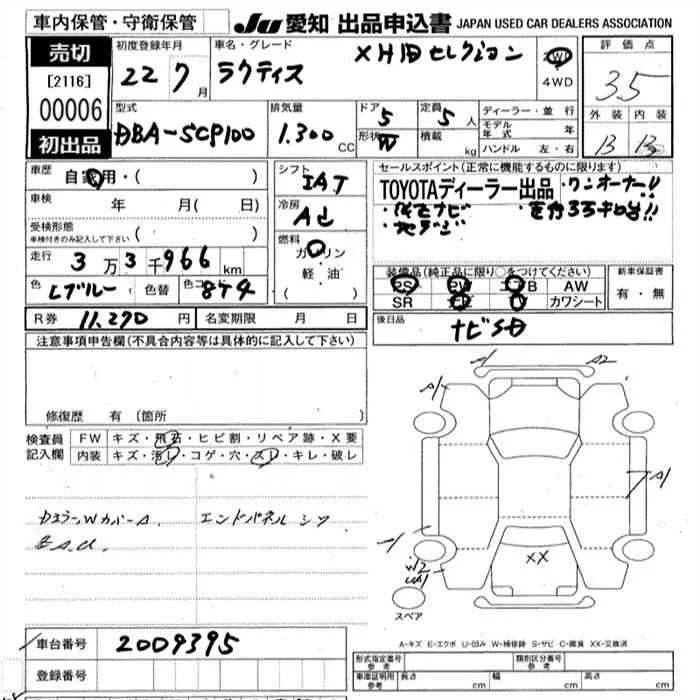 車内保管・守衛保管
JU 愛知 出品申込書 JAPAN USED CAR DEALERS ASSOCIATION
売切
[2116]
00006
初出品
初度登録年月
22 7月
車名・グレード
ラクティス XHIDセレクション
2WD
4WD
評価点
3.5
外装 内装
B B
型式
DBA-SCP100
排気量
1.300 CC
ドア 5
形状 W
定員 5人
積載 kg
ディーラー・並行
モデル年式 年
ハンドル 左・右
車歴
自家用・( )
車検
年 月( 日)
受検形態
車検付きのみ記入して下さい ( )
走行
3万3千966 km
色 Lブルー 色替 色コ 8T4
シフト
IAT
冷房
燃料
ガソリン
軽・油
( )
セールスポイント(正常に機能するものに限ります)
TOYOTAディーラー出品・ワンオーナー!!
・純正ナビ ・走行33千キロ台!!
・地デジ
装備品(純正品に限り○をつけてください)
PS PW エアB AW
SR カワシート
新車保証書
有・無
後日品
ナビSD
R券 11,270円 名変期限 月 日
注意事項申告欄(不具合内容等は具体的に記入して下さい)
修復歴 有(箇所 )
検査員記入欄
FW キズ・飛石・ヒビ割・リペア跡・X要
内装 キズ・汚レ・コゲ・穴・スレ・キレ・破レ
エンドパネル
各A.U.
A1 A2
A1
A1
W2
XX
スペア
A-キズ E-エクボ U-凹み W-補修跡 S-サビ C-腐食 XX-交換済
車台番号 2009395
登録番号
形式指定番号 参考
類別区分番号 参考
車庫証明用 参考 長さ cm 幅 cm 高さ cm